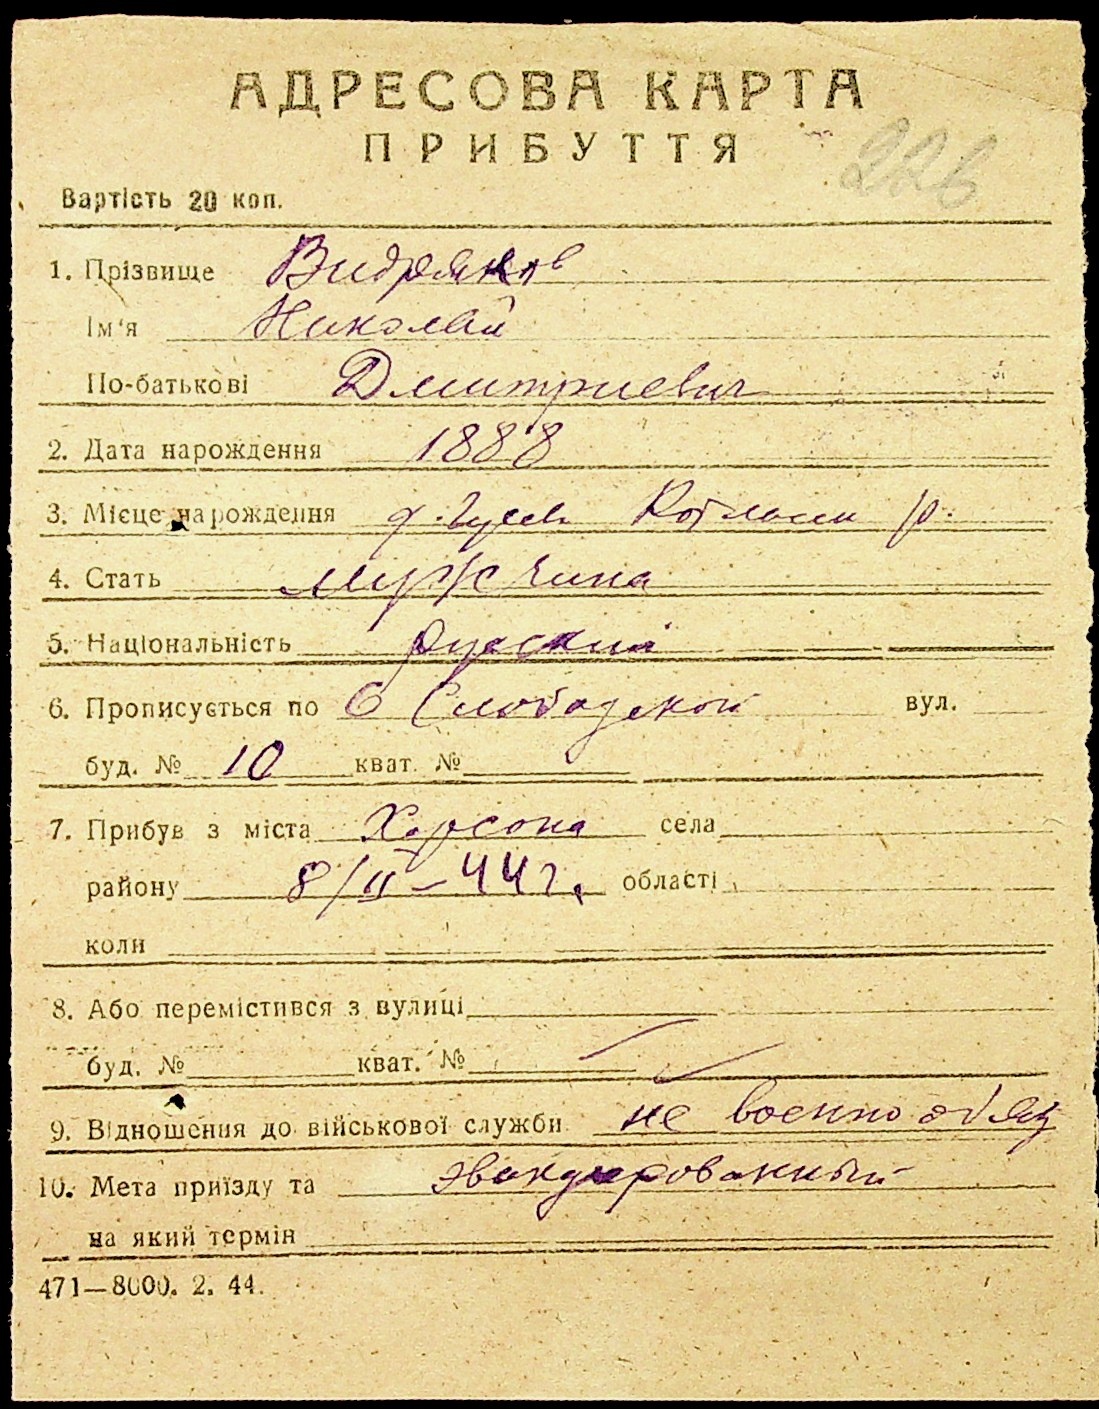 АДРЕСОВА КАРТА
ПРИБУТТЯ
226
Вартість 20 коп.
1. Прізвище
Ім'я Николай
По-батькові Дмитриевич
2. Дата народження 1888
3. Місце народження р.
4. Стать мужчина
5. Національність русский
6. Прописується по Слободской вул.
буд. № 10 кват. №
7. Прибув з міста Херсона села
району 8/II-44 г. області
коли
8. Або перемістився з вулиці
буд. № кват. №
9. Відношення до військової служби не военнообяз
10. Мета приїзду та эвакуированный
на який термін
471—8000. 2. 44.